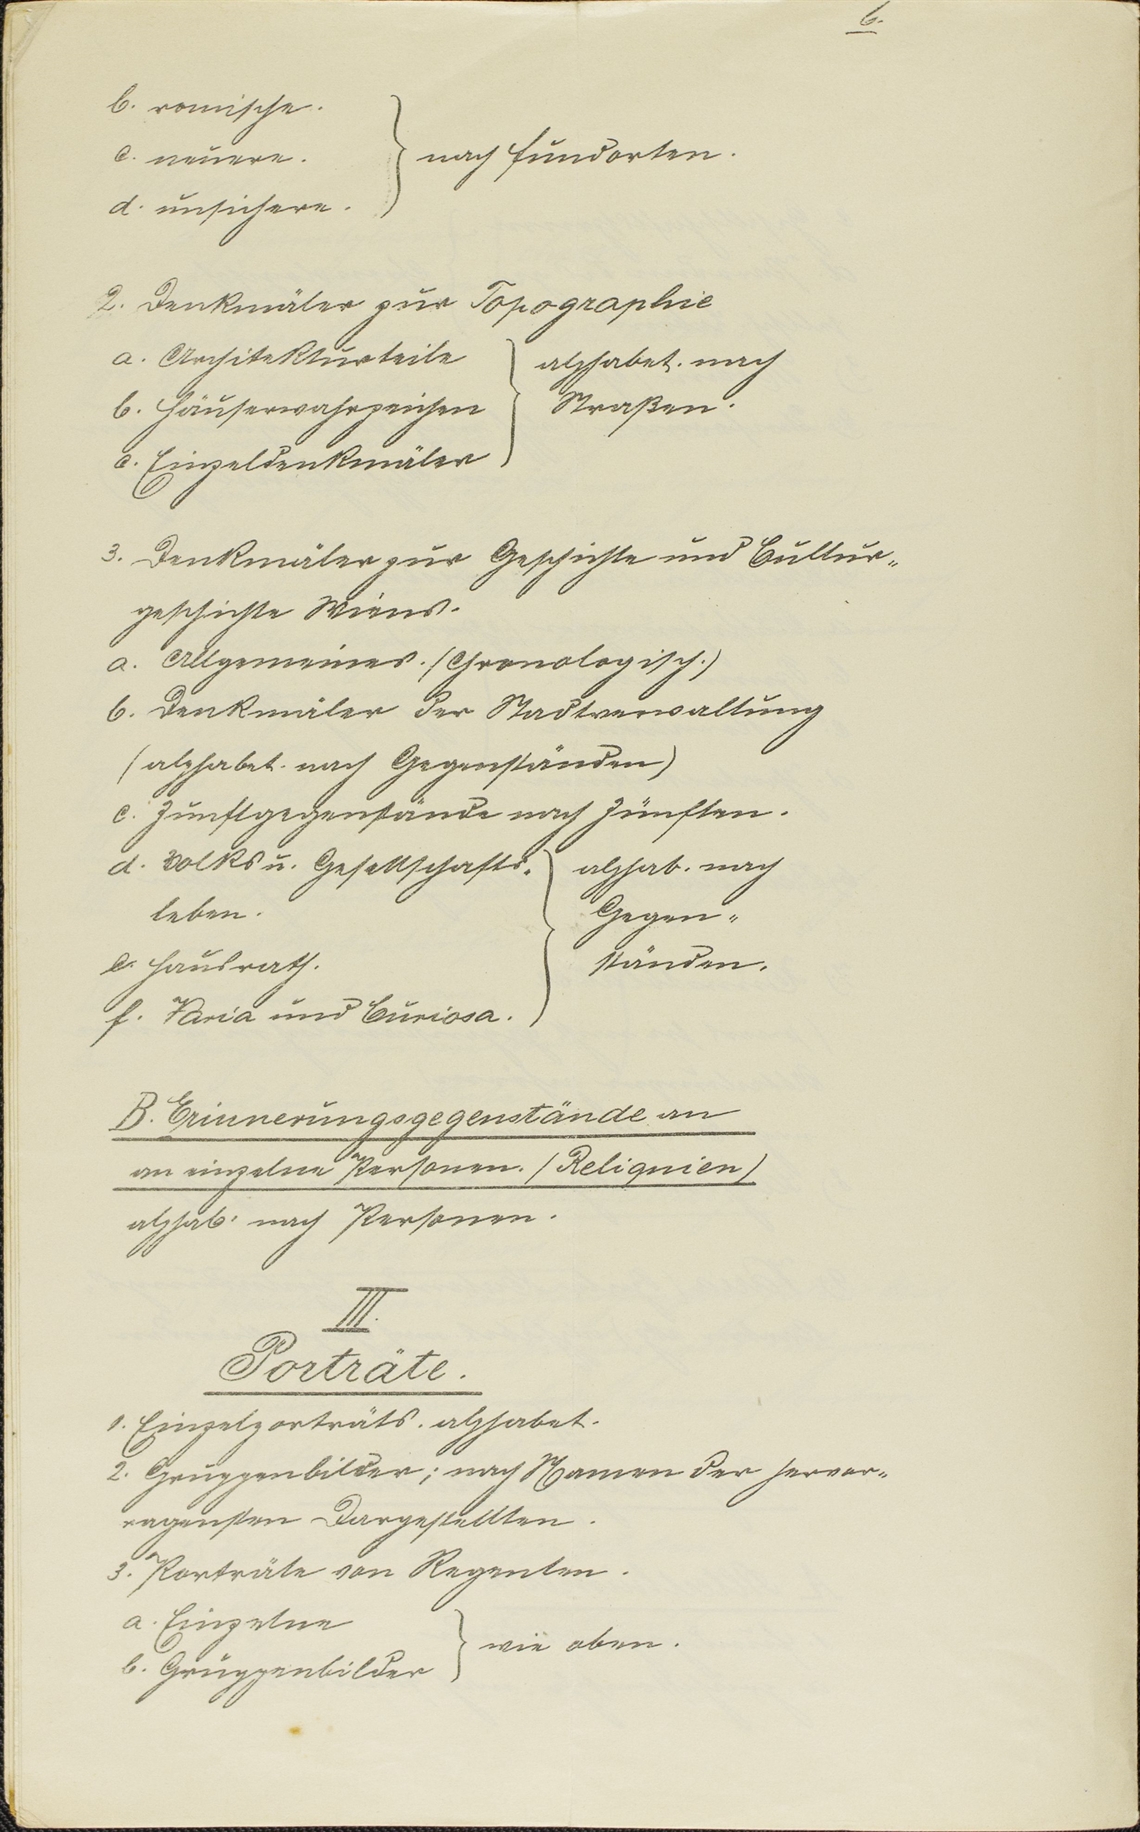 6.
b. römische.
c. neuere.
nach Fundorten.
d. unsichere.
2. Denkmäler zur Topographie
a. Architekturteile
alphabet. nach
b. Häuserwahrzeichen
Straßen.
c. Einzeldenkmäler
3. Denkmäler zur Geschichte und Cultur-
geschichte Wiens.
a. Allgemeines. (Chronologisch.)
b. Denkmäler der Stadtverwaltung
(alphabet. nach Gegenständen)
c. Zunftgegenstände nach Zünften.
d. Volks u. Gesellschafts-
alphab. nach
leben.
Gegen-
e. Hausrath.
ständen.
f. Varia und Curiosa.
B. Erinnerungsgegenstände an
an einzelne Personen. (Reliquien)
alphab. nach Personen.
III.
Porträte.
1. Einzelporträts. alphabet.
2. Gruppenbilder; nach Namen der hervor-
ragensten Dargestellten.
3. Porträte von Regenten.
a. Einzelne
wie oben.
b. Gruppenbilder